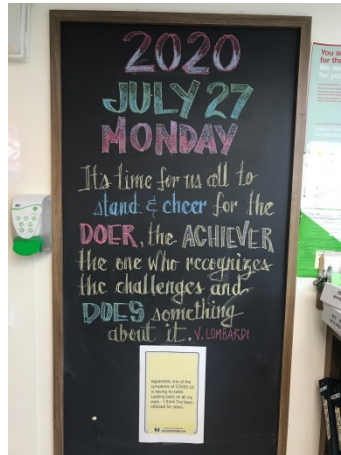 2020
JULY 27
MONDAY
It's time for us all to
stand & cheer for the
DOER, the ACHIEVER
the one who recognizes
the challenges and
DOES something
about it. V. LOMBARDI
Apparently one of the
symptoms of COVID-19
is having no taste.
Looking back on all my
exes - I think I've been
infected for years.
You a
for the